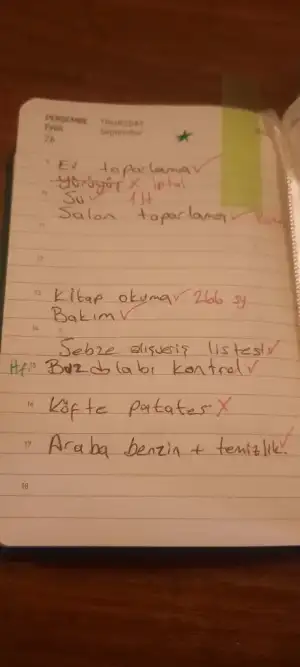 PERŞEMBE THURSDAY
September
26
Ev toparlama ✓
Yürüyüş X iptal
Su ✓ 1 lt
Salon toparlama ✓
Kitap okuma ✓ 266 sy
Bakım ✓
Sebze alışveriş listesi ✓
Buzdolabı kontrol ✓
16 Köfte patates X
17 Araba benzin + temizlik ✓
18